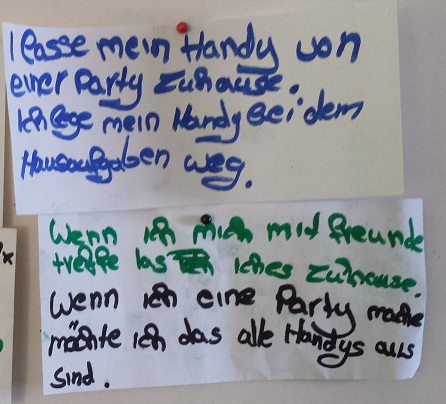 lasse mein Handy von
einer Party Zuhause.
Ich lege mein Handy bei dem
Hausaufgaben weg.
Wenn ich mich mit freunde
treffe las iches Zuhause.
Wenn ich eine Party mache
möchte ich das alle Handys aus
sind.